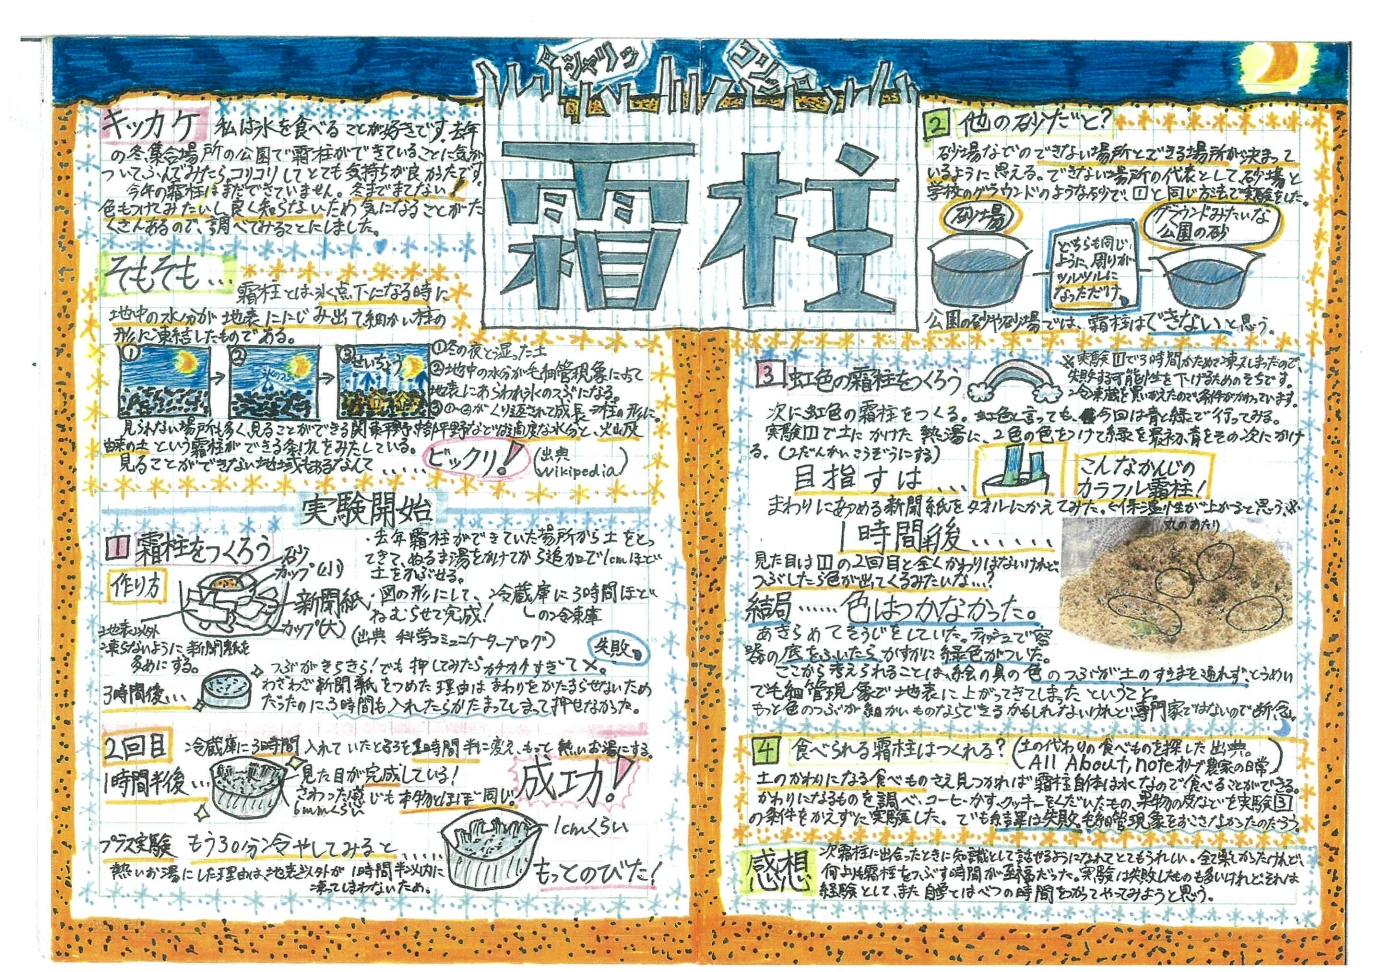 シャリッ
コリッ
霜柱
キッカケ 私は氷を食べることが好きです。去年
の冬、集合場所の公園で霜柱ができていることに気が
ついてふんでみたらコリコリしてとても気持ちが良かったです。
今年の霜柱はまだできていません。冬までまてない!
色もつけてみたいし良く知らないため気になることがた
くさんあるので、調べてみることにしました。
そもそも…
霜柱とは氷点下になる時に
地中の水分が地表ににじみ出て細かい柱の
形に凍結したものである。
① ② ③せいちょう
①冬の夜と湿った土
②地中の水分が毛細管現象によって
地表にあらわれ氷のつぶになる。
③の②がくり返されて成長→柱の形に。
見られない場所も多く、見ることができる関東平野や中部平野などは適度な水分と、火山灰
由来の土という霜柱ができる条件をみたしている。
見ることができない地域もあるなんて……
ビックリ!
(出典
Wikipedia)
実験開始
1 霜柱をつくろう
作り方
砂
カップ(小)
新聞紙
カップ(大)
地表以外
凍らないように新聞紙を
多めにする。
・去年霜柱ができていた場所から土をとっ
てきて、ぬるま湯をかけてから追加で1cmほど
土をかぶせる。
・図の形にして、冷蔵庫に3時間ほど
ねむらせて完成! の冷凍庫
(出典 科学コミュニケーターブログ)
失敗
3時間後…
つぶがきらきら!でも押してみたらカチカチすぎて×。
わざわざ新聞紙をつめた理由はまわりをかたまらせないため
だったのに3時間も入れたらかたまってしまって押せなかった。
2回目
冷蔵庫に3時間入れていたところを1時間半に変え、もっと熱いお湯にする。
1時間半後…
見た目が完成している!
さわった感じも本物とほぼ同じ。
6mmくらい
成功!
1cmくらい
プラス実験 もう30分冷やしてみると……
もっとのびた!
熱いお湯にした理由は、地表以外が1時間半以内に
凍ってしまわないため。
2 他の砂だと?
砂場などのできない場所とできる場所が決まって
いるように思える。できない場所の代表として、砂場と
学校のグラウンドのような砂で、1と同じ方法で実験をした。
砂場
グラウンドみたいな
公園の砂
どちらも同じ
ように、周りが
ツルツルに
なっただけ。
公園の砂や砂場では、霜柱はできないと思う。
3 虹色の霜柱をつくろう
※実験1で3時間かためて凍えしまったので
失敗する可能性を下げるためのそちです。
冷凍蔵を買いかえたので条件がかわっています。
次に虹色の霜柱をつくる。虹色と言っても、今回は青と緑で行ってみる。
実験1で土にかけた熱湯に、2色の色をつけて緑を最初、青をその次にかけ
る。(2だんかいこうぞうにする)
目指すは…
こんなかんじの
カラフル霜柱!
まわりに劲める新聞紙をタオルにかえてみた。保湿性が上がると思う
丸のあたり
1時間後……
見た目は1の2回目と全くかわりはないけれど
つぶしたら色が出てくるみたいな…?
結局……色はつかなかった。
あきらめてそうじをしていた。ティッシュで容
器の底をふいたらかすかに緑色がついた。
ここから考えられることは、お絵の具の色のつぶが土のすきまを通れず、とうめい
でも細管現象で地表に上がってきてしまったということ。
もっと色のつぶが細かいものならできるかもしれないけれど専門家ではないので断念。
4 食べられる霜柱はつくれる?(土の代わりの食べものを探した出典。
All About, note オリーブ農家の日常)
土のかわりになる食べものさえ見つかれば霜柱自体は氷なので食べることができる。
かわりになるものを調べ、コーヒーかす、クッキーをくだいたもの、果物の皮などを実験3
の条件をかえずに実験した。でも結果は失敗。毛細管現象をおこさなかったのだろう。
感想
次霜柱に出会ったときに知識として話せるようになれてとてもうれしい。全て楽しかったけれど、
何より霜柱をつぶす時間が至福だった。実験は失敗したものも多いけれどそれは
経験として、また自学とはべつの時間をとってやってみようと思う。